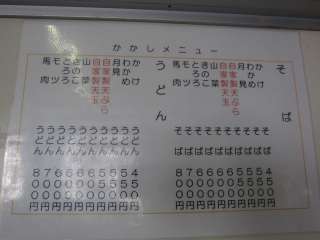 かかしメニュー
そば
かけそば 400円
わかめそば 500円
月見そば 500円
自家製天ぷらそば 500円
自家製天玉そば 600円
山菜そば 600円
きのこそば 600円
とろろそば 600円
モツそば 700円
馬肉そば 800円
うどん
かけうどん 400円
わかめうどん 500円
月見うどん 500円
自家製天ぷらうどん 500円
自家製天玉うどん 600円
山菜うどん 600円
きのこうどん 600円
とろろうどん 600円
モツうどん 700円
馬肉うどん 800円